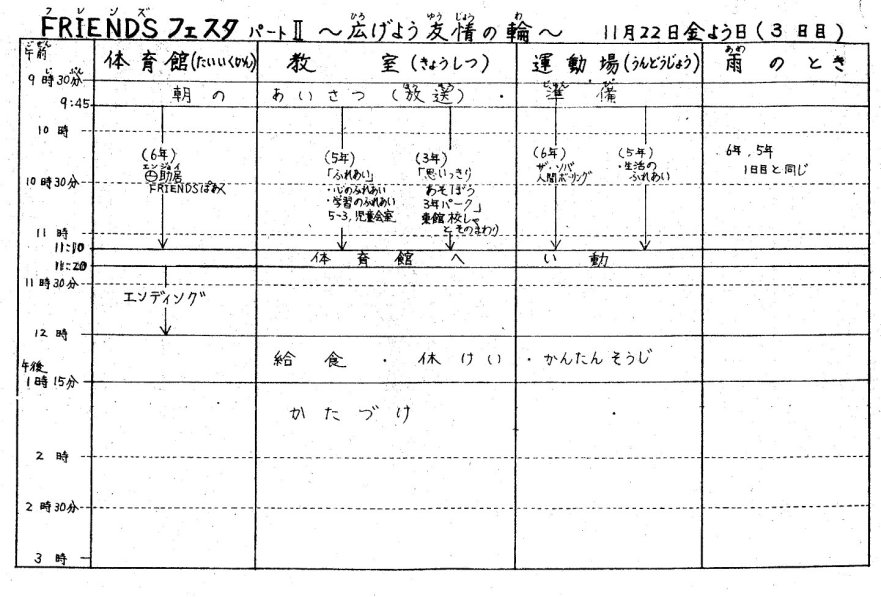 FRIENDSフェスタ パートⅡ ～広げよう友情の輪～ 11月22日金よう日(3日目)
フレンズ ひろ ゆうじょう わ
午前 体育館(たいいくかん) 教室(きょうしつ) 運動場(うんどうじょう) 雨のとき
9時30分
朝のあいさつ(放送)・準備
9:45
10時
(6年)
エンジョイ
助居
FRIENDSぱあく
(5年)
「ふれあい」
・心のふれあい
・学習のふれあい
5-3,児童会室
(3年)
「思いっきり
あそぼう
3年パーク」
東館 校しゃ
とそのまわり
(6年)
ザ・ソバ
人間ボーリング
(5年)
・生活の
ふれあい
6年,5年
1日目と同じ
10時30分
11時
11:10
体育館へい動
11:20
11時30分
エンディング
12時
給食・休けい・かんたんそうじ
午後
1時15分
かたづけ
2時
2時30分
3時